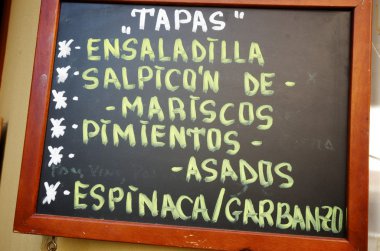 "TAPAS"
* ENSALADILLA
* SALPICÓN DE -
* - MARISCOS
* PIMIENTOS -
* - ASADOS
* ESPINACA/GARBANZO